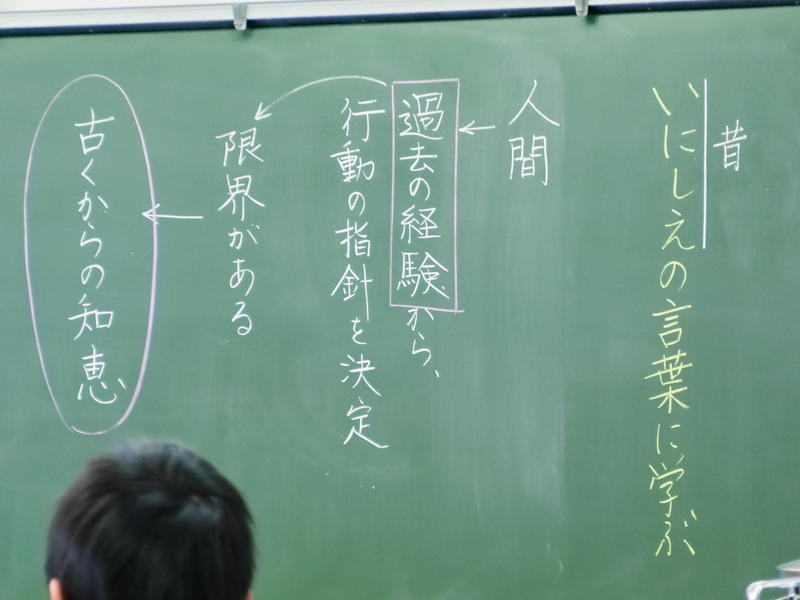 昔
いにしえの言葉に学ぶ
人間
過去の経験から、
行動の指針を決定
限界がある
古くからの知恵